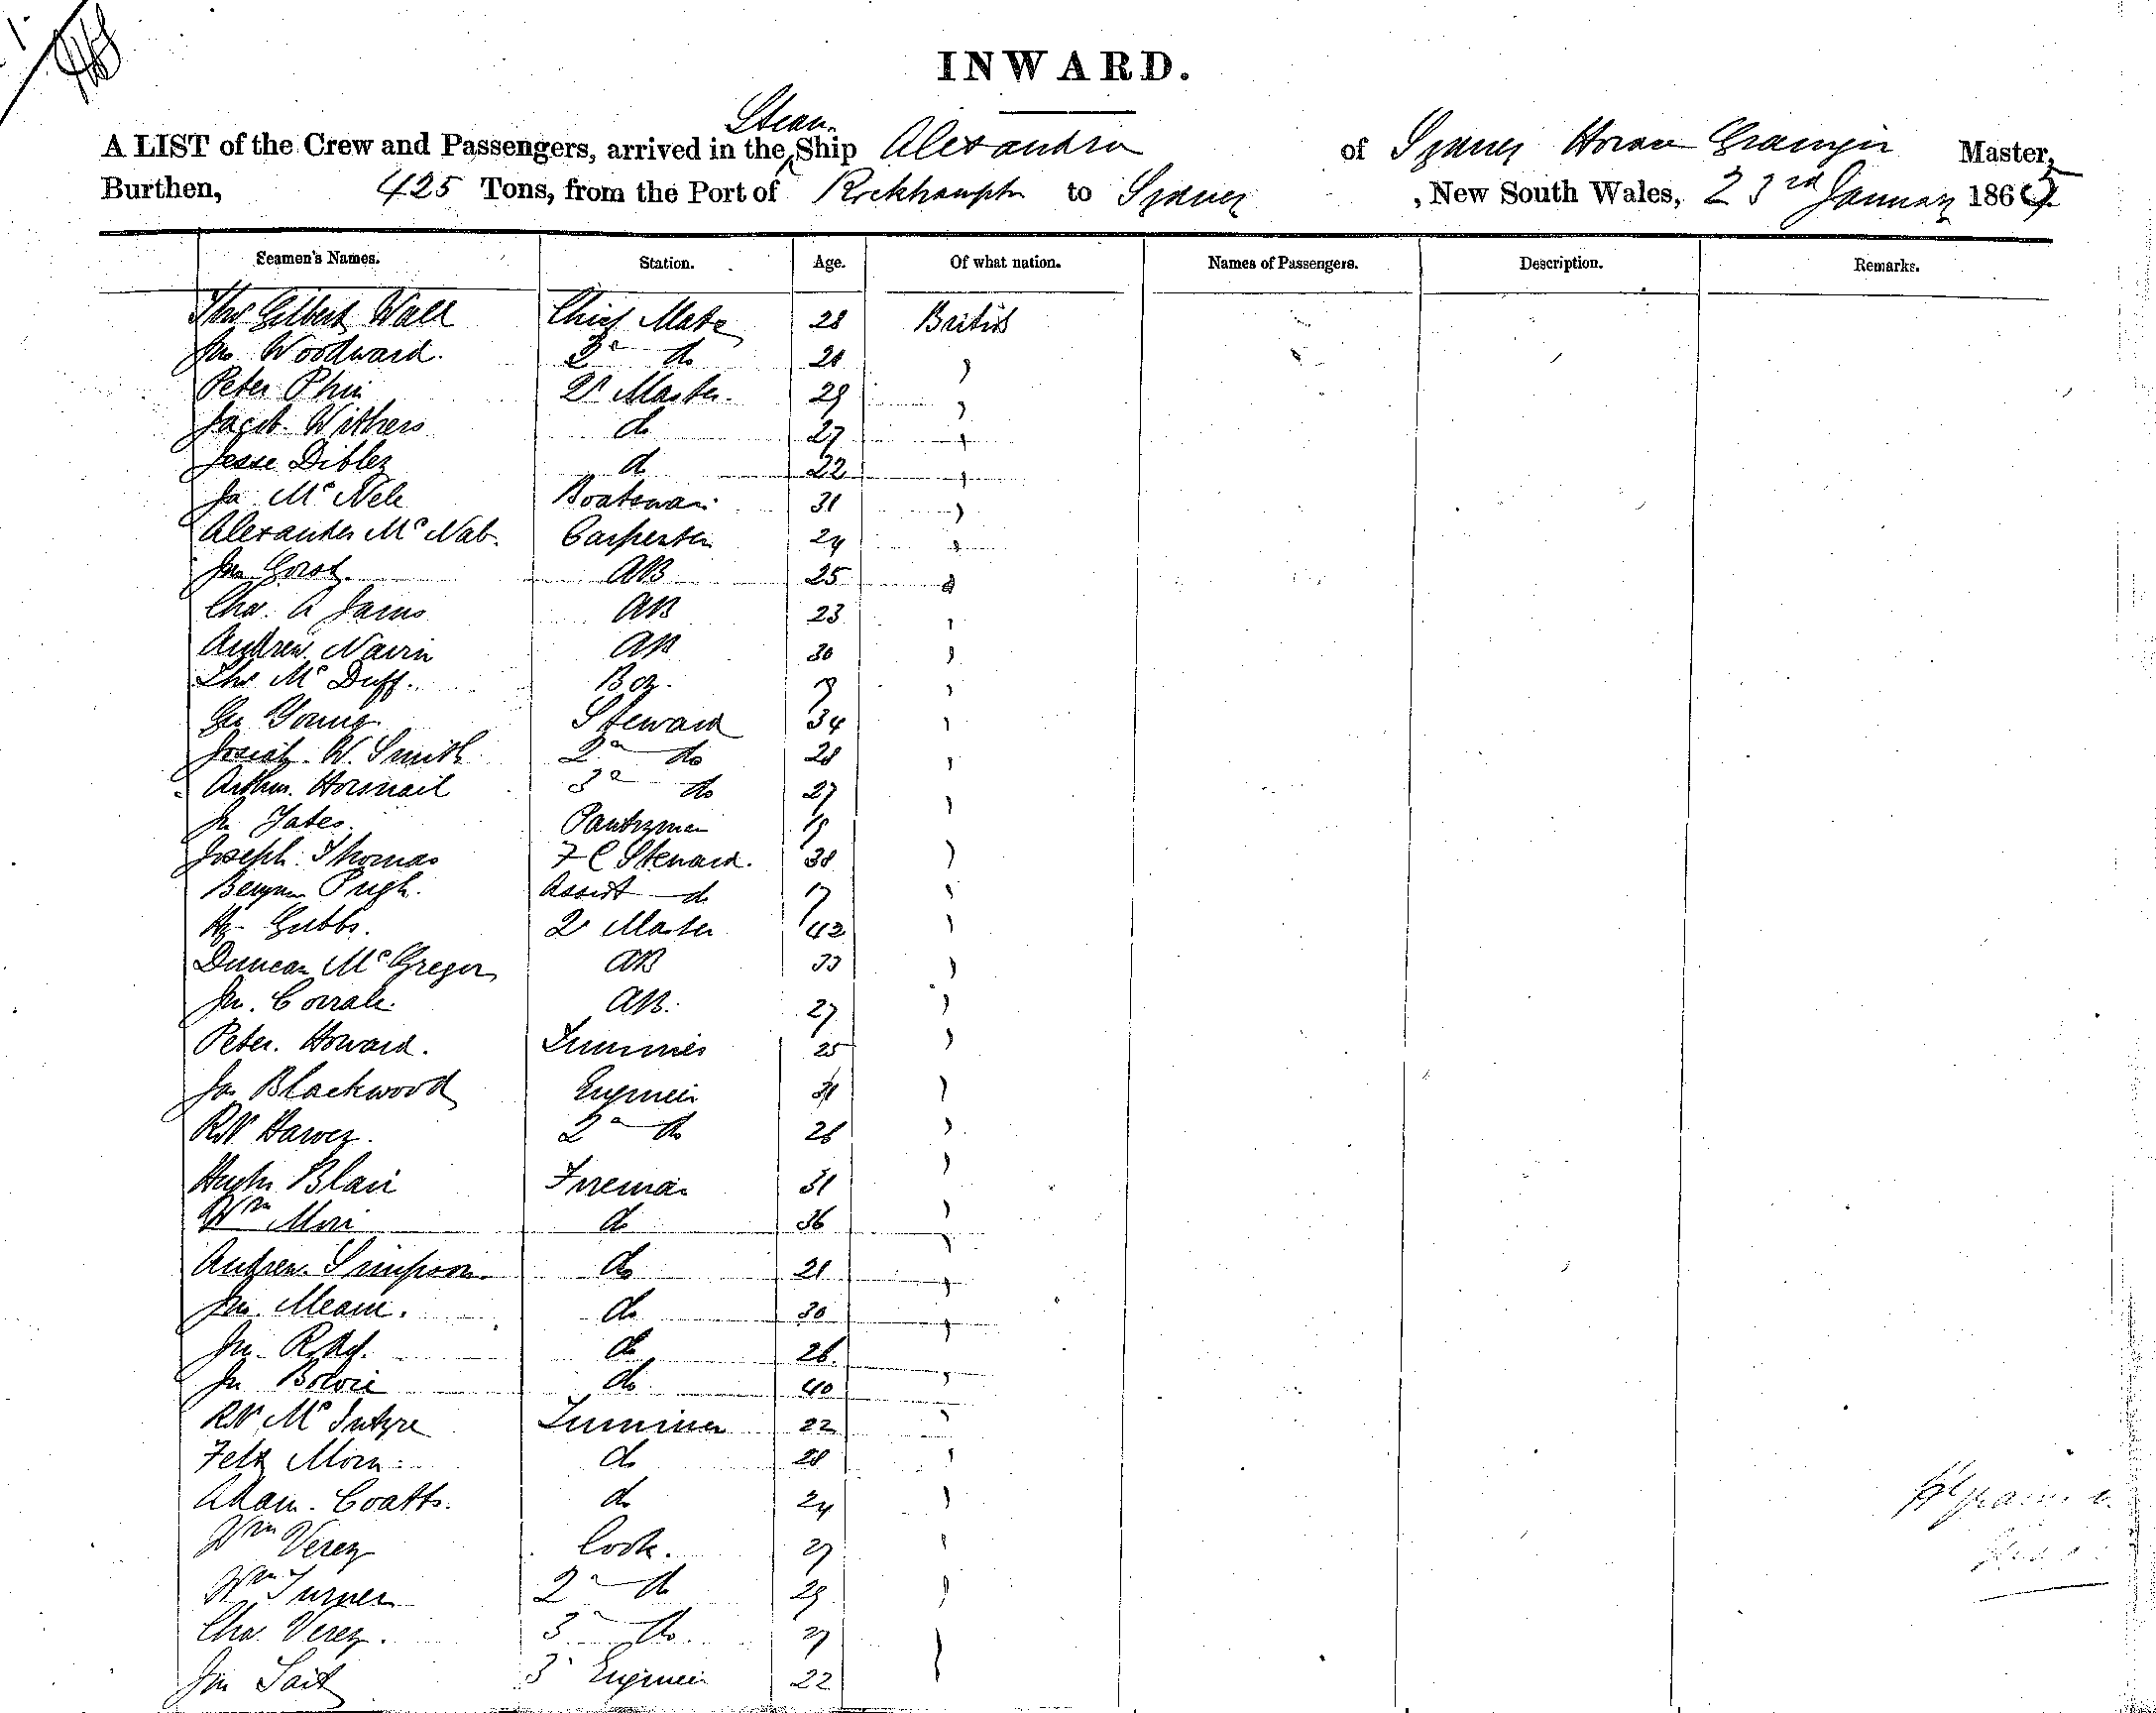 INWARD.
Steam
A LIST of the Crew and Passengers, arrived in the Ship Alexandra of Sydney Master,
Burthen, 425 Tons, from the Port of Rockhampton to Sydney , New South Wales, 23rd January 186
Seamen's Names. Station. Age. Of what nation. Names of Passengers. Description. Remarks.
Thos Gilbert Wall Chief Mate 28 British
Jas Woodward. 2nd do
Peter Phin Qr Master. 29 "
Jacob Withers do 27 "
Jesse Dibley do 22 "
Mc Boatswain 31 "
Alexander McNab. Carpenter 24 "
AB 25 "
Chas. A James AB 23 "
Andrew Navin AB 30 "
Thos McDuff. Boy. "
Geo Young Steward 34 "
Josiah W. Smith 2nd do 28 "
Arthur Horsnail 3rd do 27 "
Jn Yates Pantryman 19 "
Joseph Thomas F C Steward. 38 "
Benjn Pugh. Assist do 17 "
Hy Gibbs. Qr Master 42 "
Duncan McGregor AB 33 "
Jn. AB. 27 "
Peter. Howard. Trimmer 25 "
Jas Blackwood Engineer "
Rt Harvey. 2nd do 26 "
Hugh Blair Fireman 31 "
Wm do 36 "
Andrew Simpson do 21 "
Jn do 30 "
Jn do 26. "
Jn Bowie do 40 "
Rt McIntyre Trimmer 22 "
do 28 "
Adam. Coatts. do 24 "
Wm Verey Cook. 27 "
Wm Turner 2nd do 29 "
Chas. Verey. 3 do 27 "
Jn Tait 3 Engineer 22 "